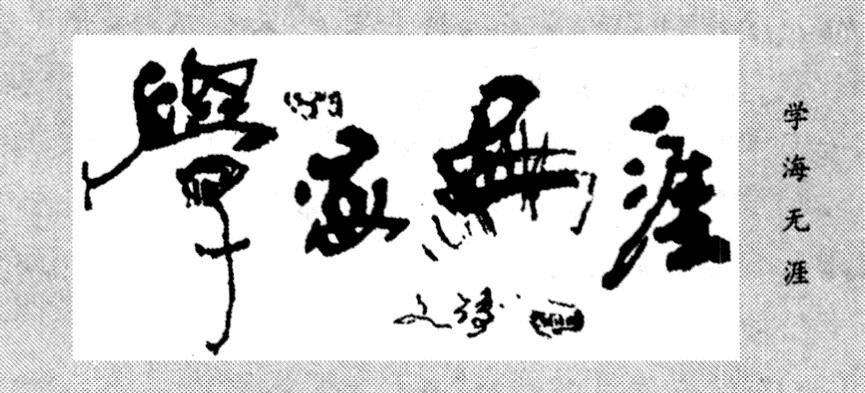 學海無涯
学海无涯